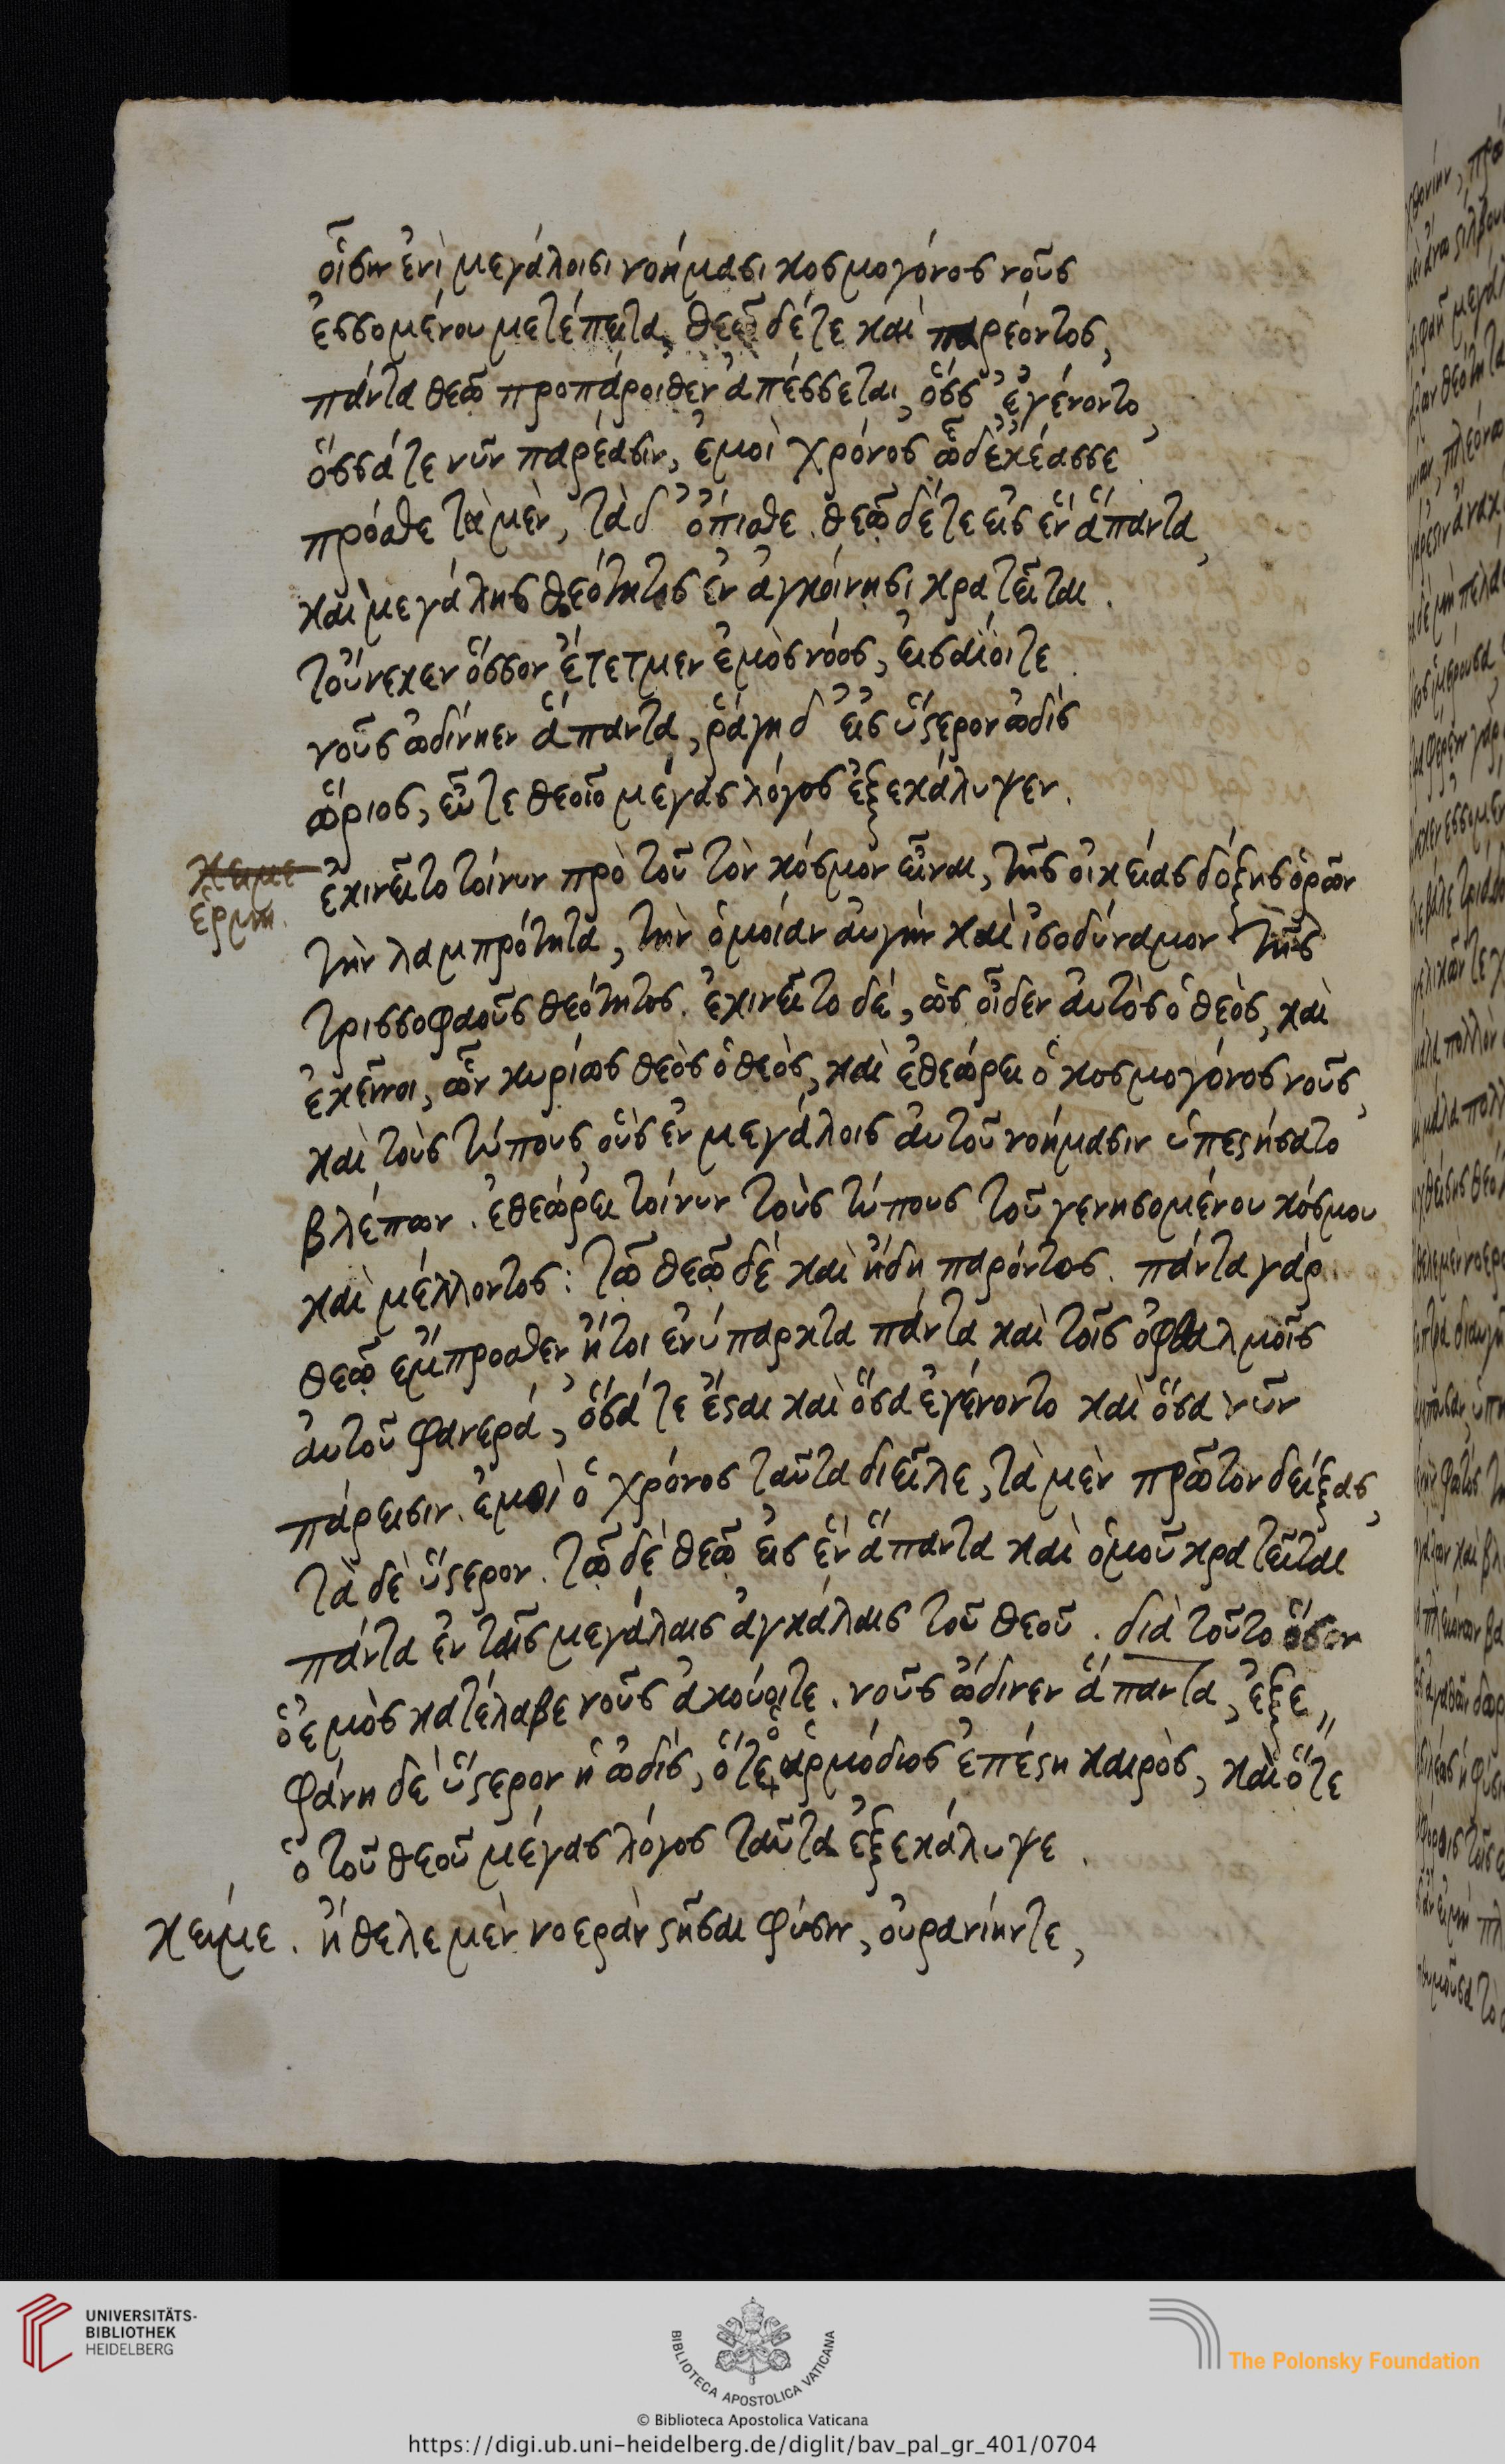 οἷσιν ἐνὶ μεγάλοισι νοήμασι κοσμογόνος νοῦς
ἐσσομένου μετέπειτα, θεῷ δέ τε καὶ παρεόντος,
πάντα θεῷ προπάροιθεν ἃ πέσσεται, ὅσσ' ἐγένοντο,
ὅσσά τε νῦν παρέασιν, ἐμοὶ χρόνος ὧδ' ἐκέασσε
πρόσθε τὰ μὲν, τὰ δ' ὄπισθε. θεῷ δέ τε εἰς ἓν ἅπαντα,
καὶ μεγάλης θεότητος ἐν ἀγκοίνησι κρατεῖται.
τοὔνεκεν ὅσσον ἔτετμεν ἐμὸς νόος, εἰσαΐοιτε.
νοῦς ὠδίνηεν ἅπαντα, ῥάγη δ' εἰς ὕστερον ὠδὶς
ὥριος, εὖτε θεοῖο μέγας λόγος ἐξεκάλυψεν.
κειμε
ἑρμη.
ἐκινεῖτο τοίνυν πρὸ τοῦ τὸν κόσμον εἶναι, τῆς οἰκείας δόξης ὁρῶν
τὴν λαμπρότητα, τὴν ὁμοίαν αὐγὴν καὶ ἰσοδύναμον τῆς
τρισσοφαοῦς θεότητος. ἐκινεῖτο δέ, ὡς οἶδεν αὐτὸς ὁ θεὸς, καὶ
ἐκεῖνοι, ὧν κυρίως θεὸς ὁ θεὸς, καὶ ἐθεώρει ὁ κοσμογόνος νοῦς,
καὶ τοὺς τύπους, οὓς ἐν μεγάλοις αὐτοῦ νοήμασιν ὑπεστήσατο
βλέπων. ἐθεώρει τοίνυν τοὺς τύπους τοῦ γενησομένου κόσμου
καὶ μέλλοντος: τῷ θεῷ δὲ καὶ ἤδη παρόντος. πάντα γάρ
θεῷ ἔμπροσθεν, ἤτοι ἐνύπαρκτα πάντα καὶ τοῖς ὀφθαλμοῖς
αὐτοῦ φανερά, ὅσά τε ἔσται καὶ ὅσα ἐγένοντο καὶ ὅσα νῦν
πάρεισιν. ἐμοὶ ὁ χρόνος ταῦτα διεῖλε, τὰ μὲν πρῶτον δείξας,
τὰ δὲ ὕστερον. τῷ δὲ θεῷ εἰς ἓν ἅπαντα καὶ ὁμοῦ κρατεῖται
πάντα ἐν ταῖς μεγάλαις ἀγκάλαις τοῦ θεοῦ. διὰ τοῦτο ὅσον
ὁ ἐμὸς κατέλαβε νοῦς ἀκούοιτε. νοῦς ὤδινεν ἅπαντα, ἐξε〃
φάνη δὲ ὕστερον ἡ ὠδὶς, ὅτε ὁ ἁρμόδιος ἐπέστη καιρὸς, καὶ ὅτε
ὁ τοῦ θεοῦ μέγας λόγος ταῦτα ἐξεκάλυψε.
κείμε. ἤθελε μὲν νοερὰν στῆσαι φύσιν, οὐρανίην τε,
UNIVERSITÄTS-
BIBLIOTHEK
HEIDELBERG
BIBLIOTECA APOSTOLICA VATICANA
The Polonsky Foundation
© Biblioteca Apostolica Vaticana
https://digi.ub.uni-heidelberg.de/diglit/bav_pal_gr_401/0704